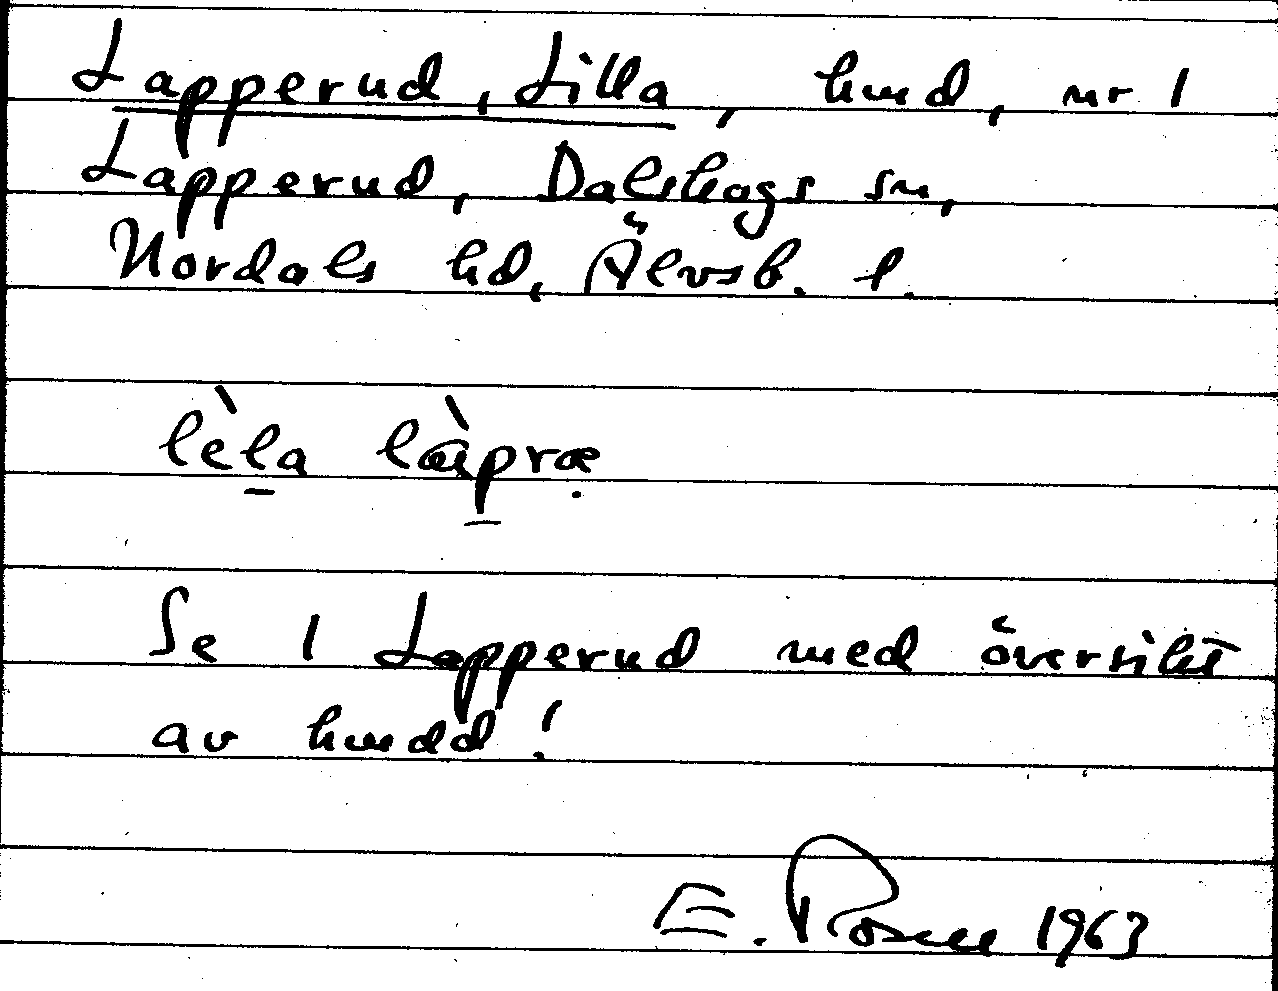 Lapperud, Lilla, hmd, nr 1
Lapperud, Dalskogs sn,
Nordals hd, Älvsb. l.
lèla làpræ
Se 1 Lapperud med översikt
av hmdd!
E. Rosell 1963